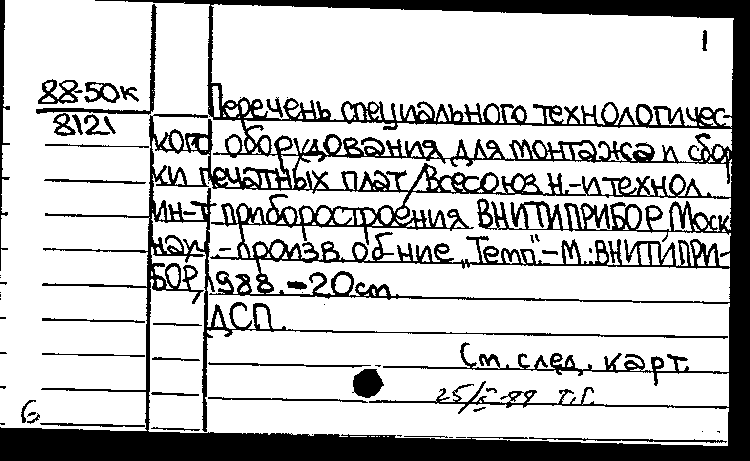 1
88-50к
8121
Перечень специального технологичес-
кого оборудования для монтажа и сбор
ки печатных плат/Всесоюз. н.-и технол.
ин-т приборостроения ВНИТИПРИБОР, Моск
науч.-произв. об-ние „Темп".-М.:ВНИТИПРИ-
БОР, 1988.-20см.
ДСП.
См. след. карт.
Т.Г.
6